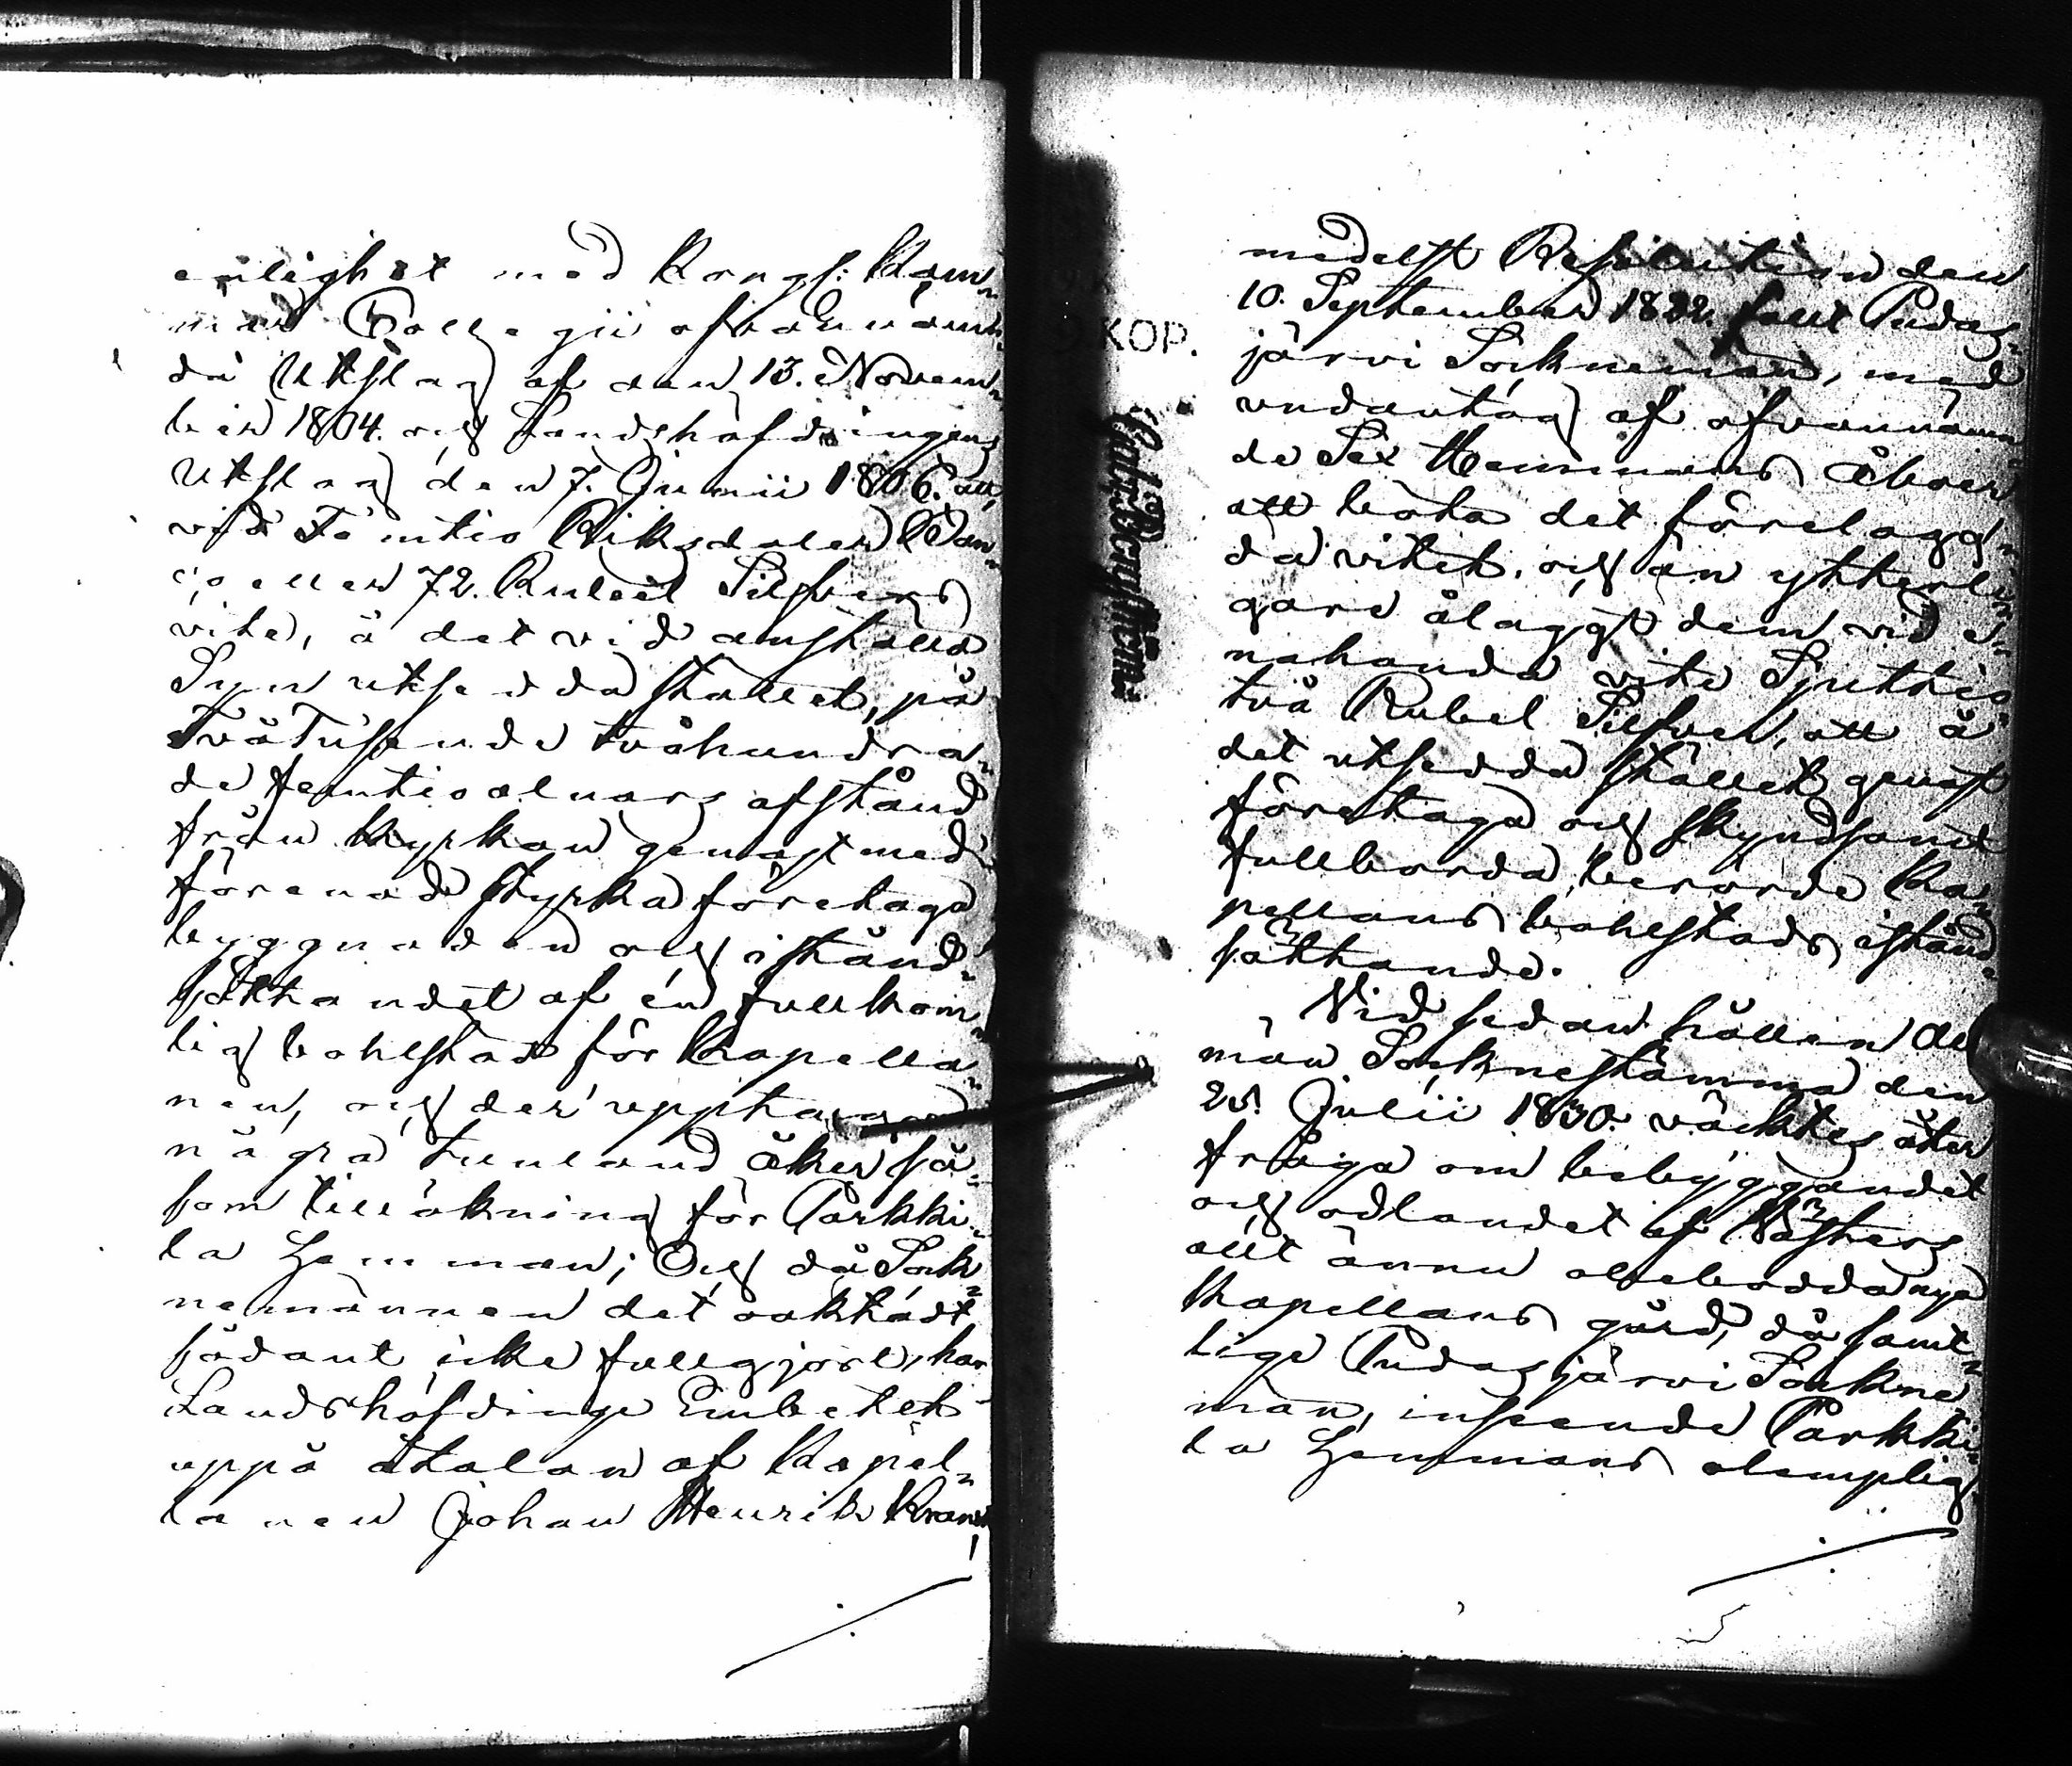 enlighet med Kongl: Kam-
mar Collegii ofvannämn-
da Utslag af den 13. Novem-
ber 1804. och Landshöfdingens
Utslag den 7. Junii 1806. att
vid Femtio Riksdaler Ban-
co eller 72. Rubel Silfvers
vite, å det vid anstälda
Syn utsedda stället, på
Tvåtusende tvåhundra-
de femtio alnars afstånd
från kyrkan genast med
förenad styrka företaga
byggnaden och istånd-
sättandet af en fullkom-
lig bohlstad för Kapella-
nen, och der upptaga
några tunland åker så-
som tillökning för Parkki-
la Hemman; Och då Sock-
nemännen det oaktadt
sådant icke fullgjort, har
Landshöfdinge Embetet
uppå åtalan af Kapel-
lanen Johan Henrik Kränck
9 KOP.
medelst Resolution den
10. September 1822. fält Pudas-
järvi Sockneman, med
undantag af ofvannämn-
de Sex Hemmans Åboer
att böta det förelagg-
da vitet, och än ytterli-
gare ålaggt dem vid e-
nahanda vite Sjuttio
två Rubel Silfver, att å
det utsedda stället genast
företaga och skyndsamt
fullborda, berörde Ka-
pellans bohlstads istånd-
sättande.
Vid sedan hållen All-
män Socknestämma den
25. Julii 1830. väcktes åter
fråga om bebyggandet
och odlandet af
allt ännu obebodda nya
Kapellans gård, då samt-
lige Pudasjärvi Sockne-
män, inseende Parkki-
la Hemmans olämplig-
5